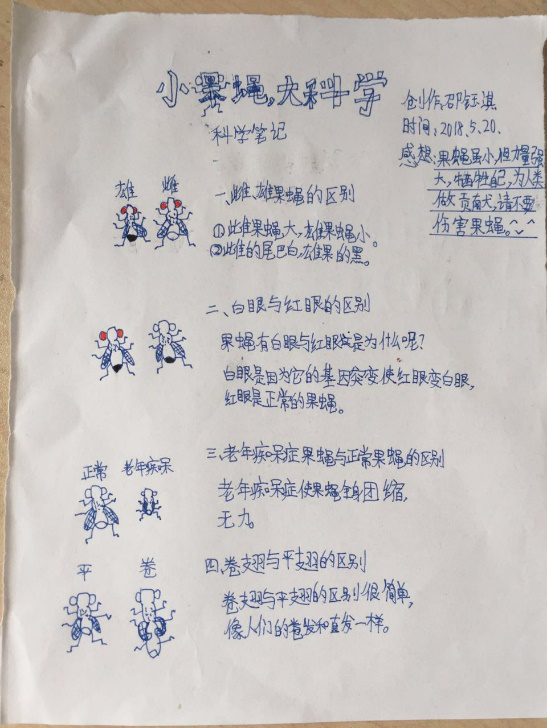 小果蝇,大科学
科学笔记
创作:邵钰淇
时间:2018.5.20.
感想:果蝇虽小,但力量强
大,牺牲自己,为人类
做贡献,请不要
伤害果蝇。
雄 雌
一、雌、雄果蝇的区别
①雌果蝇大,雄果蝇小。
②雌的尾巴白,雄果的黑。
二、白眼与红眼的区别
果蝇有白眼与红眼这是为什么呢?
白眼是因为它的基因突变使红眼变白眼,
红眼是正常的果蝇。
正常 老年痴呆
三、老年痴呆症果蝇与正常果蝇的区别
老年痴呆症使果蝇全身团缩,
无力。
平 卷
四、卷翅与平翅的区别
卷翅与平翅的区别很简单,
像人们的卷发和直发一样。